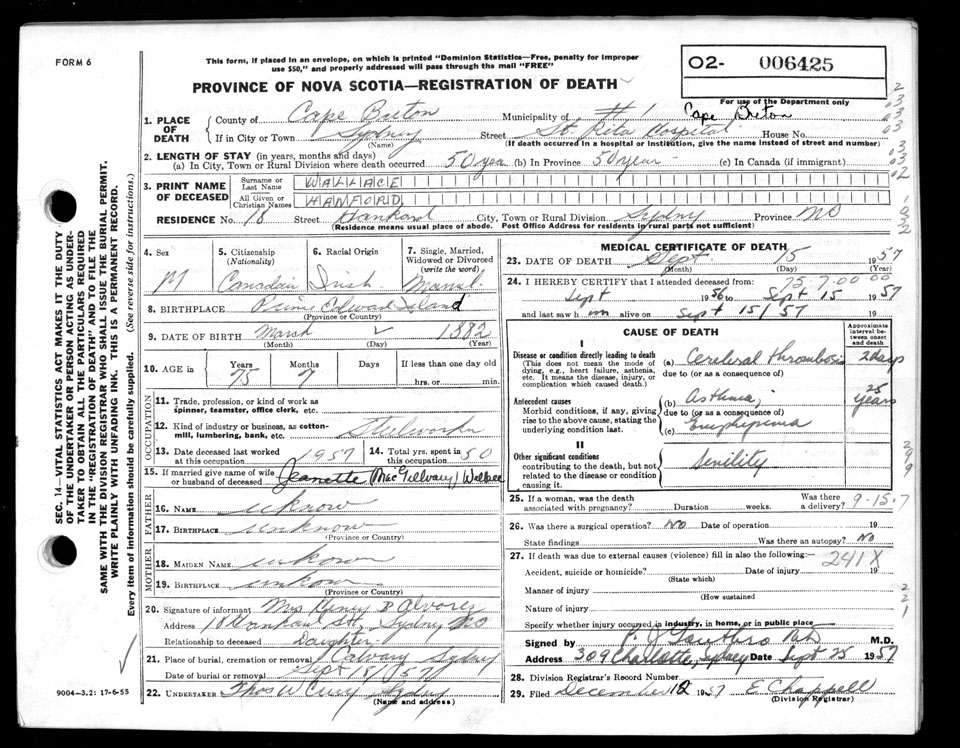 FORM 6
This form, if placed in an envelope, on which is printed "Dominion Statistics—Free, penalty for improper
use $50," and properly addressed will pass through the mail "FREE"
O2- 006425
PROVINCE OF NOVA SCOTIA—REGISTRATION OF DEATH
For use of the Department only
1. PLACE OF DEATH
County of Cape Breton Municipality of #1 Cape Breton
If in City or Town Sydney Street St. Rita Hospital House No.
(Name) (If death occurred in a hospital or institution, give the name instead of street and number)
2. LENGTH OF STAY (in years, months and days)
(a) In City, Town or Rural Division where death occurred 50 year (b) In Province 50 year - (c) In Canada (if immigrant)
3. PRINT NAME OF DECEASED
Surname or Last Name WALLACE
All Given or Christian Names HANFORD
RESIDENCE No. 18 Street City, Town or Rural Division Sydney Province NS
(Residence means usual place of abode. Post Office Address for residents in rural parts not sufficient)
4. Sex M
5. Citizenship (Nationality) Canadian
6. Racial Origin Irish
7. Single, Married, Widowed or Divorced (write the word)
8. BIRTHPLACE Prince Edward Island
(Province or Country)
9. DATE OF BIRTH March 1882
(Month) (Day) (Year)
10. AGE in Years Months Days If less than one day old
75 7 hrs. or min.
OCCUPATION
11. Trade, profession, or kind of work as
spinner, teamster, office clerk, etc.
12. Kind of industry or business, as cotton-
mill, lumbering, bank, etc. Steelworker
13. Date deceased last worked at this occupation 1957
14. Total yrs. spent in this occupation 50
15. If married give name of wife
or husband of deceased Jeanette (MacGillvary) Wallace
FATHER
16. NAME unknow
17. BIRTHPLACE unknow
(Province or Country)
MOTHER
18. MAIDEN NAME unkown
19. BIRTHPLACE unkown
(Province or Country)
20. Signature of informant Mrs Henry D
Address 18 St, Sydney NS
Relationship to deceased Daughter
21. Place of burial, cremation or removal Calvary Sydney
Date of burial or removal Sept 18/57
22. UNDERTAKER Thos W Curry Sydney
(Name and address)
MEDICAL CERTIFICATE OF DEATH
23. DATE OF DEATH Sept 15 1957
(Month) (Day) (Year)
75.7.00 00
24. I HEREBY CERTIFY that I attended deceased from:
Sept 1956 to Sept 15 1957
and last saw him alive on Sept 15/57 19
CAUSE OF DEATH
Approximate interval between onset and death
I
Disease or condition directly leading to death
(This does not mean the mode of
dying, e.g., heart failure, asthenia,
etc. It means the disease, injury, or
complication which caused death.)
(a) Cerebral thrombosis 2 days
due to (or as a consequence of)
Antecedent causes
Morbid conditions, if any, giving
rise to the above cause, stating the
underlying condition last.
(b) Asthma 25 years
due to (or as a consequence of)
(c) Emphysema
II
Other significant conditions
contributing to the death, but not
related to the disease or condition
causing it.
Senility
25. If a woman, was the death
associated with pregnancy? Duration weeks. Was there a delivery? 9-15-7
26. Was there a surgical operation? No Date of operation 19
State findings Was there an autopsy? No
27. If death was due to external causes (violence) fill in also the following: 241X
Accident, suicide or homicide? Date of injury 19
(State which)
Manner of injury
(How sustained
Nature of injury
Specify whether injury occurred in industry, in home, or in public place
Signed by M.D.
Address 309 Charlotte, Sydney Date Sept 25 1957
28. Division Registrar's Record Number
29. Filed December 12 1957 E Chappell
(Division Registrar)
SEC. 14—VITAL STATISTICS ACT MAKES IT THE DUTY
OF THE UNDERTAKER OR PERSON ACTING AS UNDER-
TAKER TO OBTAIN ALL THE PARTICULARS REQUIRED
IN THE "REGISTRATION OF DEATH" AND TO FILE THE
SAME WITH THE DIVISION REGISTRAR WHO SHALL ISSUE THE BURIAL PERMIT.
WRITE PLAINLY WITH UNFADING INK. THIS IS A PERMANENT RECORD.
Every item of information should be carefully supplied. (See reverse side for instructions.)
9004-3.2: 17-6-55